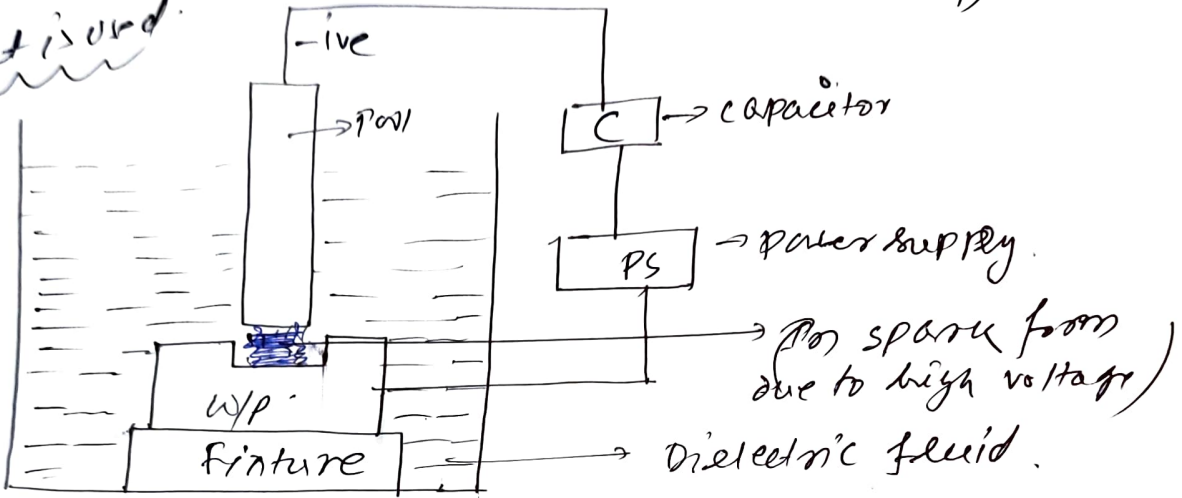 t is used.
-ive
Tool
C
capacitor
PS
power supply.
spark form
due to high voltage)
W/P
Finture
Dielectric fluid.